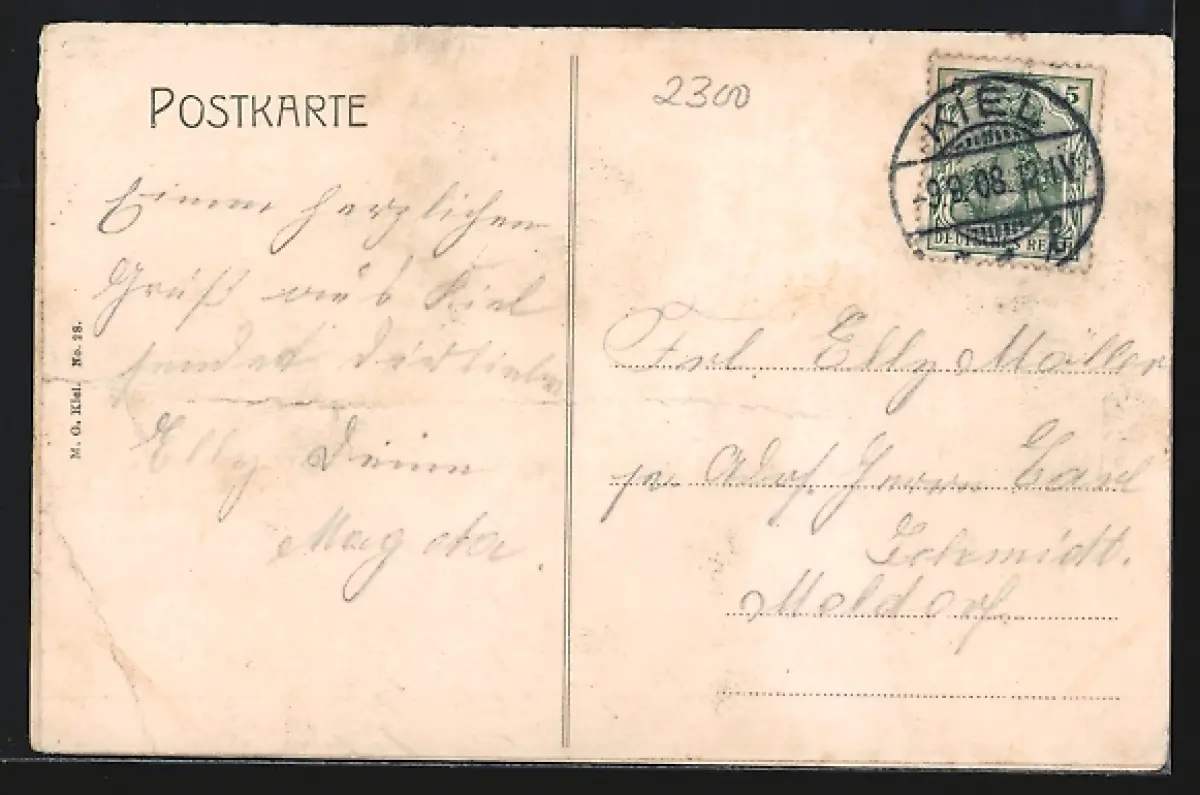 POSTKARTE
Einen herzlichen
Gruß aus Kiel
sendet Dir liebe
Elly Deine
Magda.
M. G. Kiel. No. 28.
2300
5
KIEL
-9.9.08. 12-1V.
DEUTSCHES REICH
Frl Elly Möller
pr. Adr. Herrn Carl
Schmidt.
Meldorf